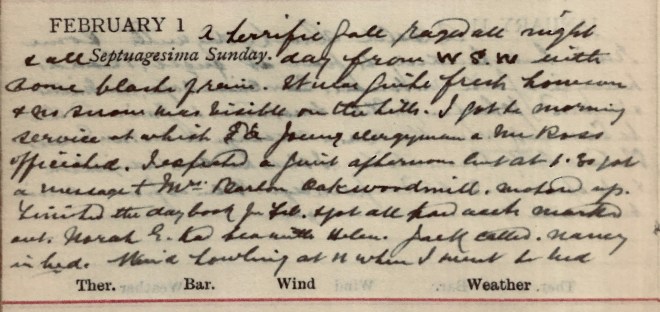 FEBRUARY 1 A terrific gale raged all night
& all Septuagesima Sunday. day from W S W with
some black rain. It was quite fresh however
& no snow was visible on the hills. I got to morning
service at which a young clergyman a Mr Ross
officiated. I expected a quiet afternoon but at 1.30 got
a message Mrs Oakwoodmill. motored up.
the daybook for Feb. & got all marked
out. Norah E. had tea with Helen. Jack called. Nancy
in bed. Wind howling at 11 when I went to bed
Ther. Bar. Wind Weather